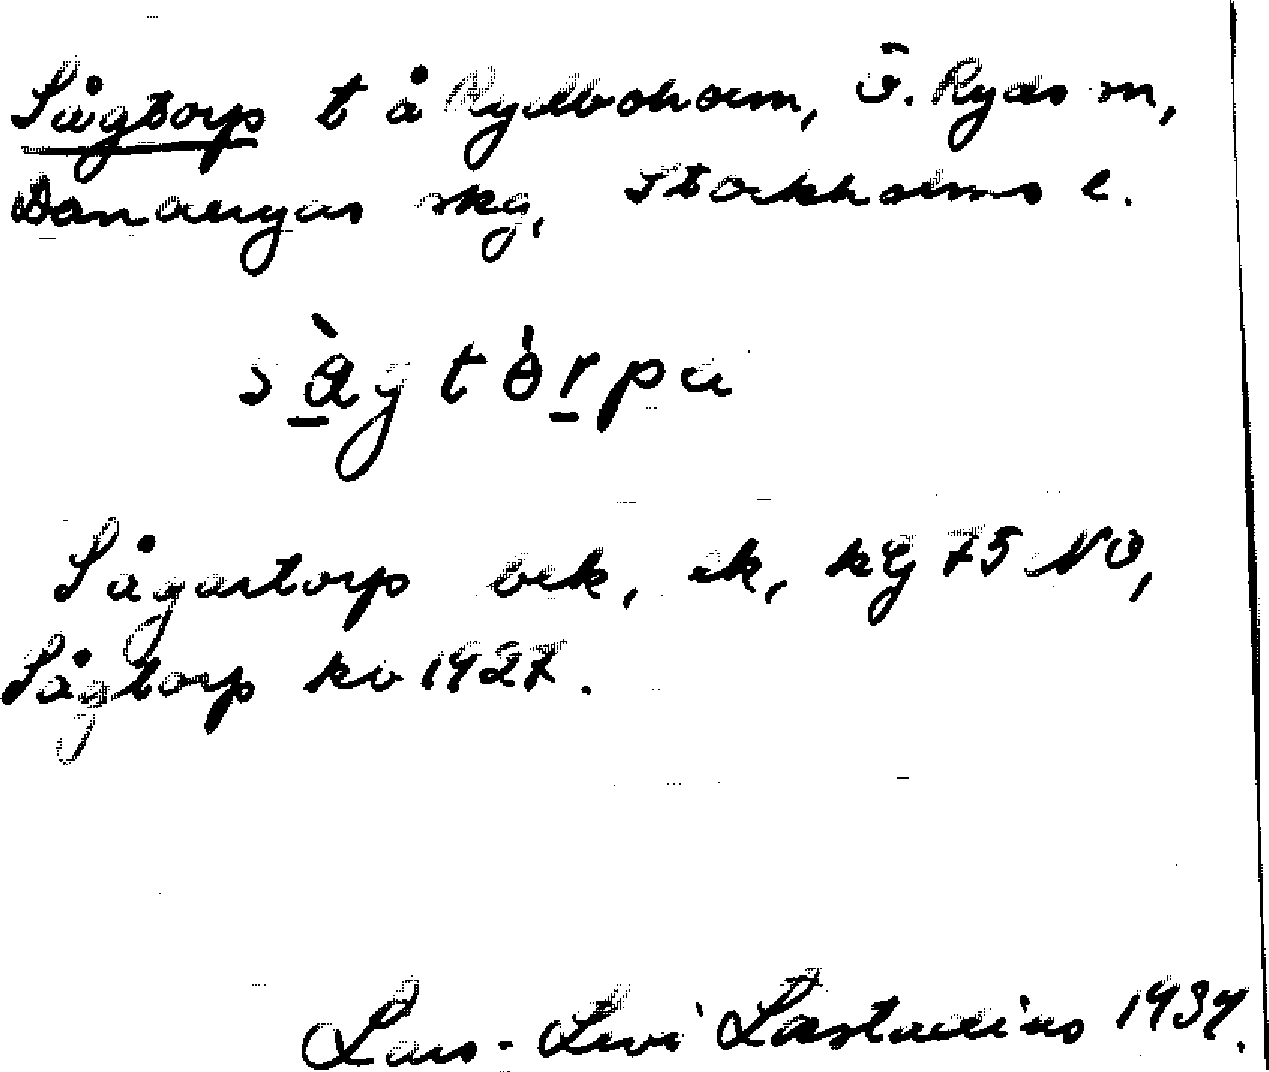 Sågtorp t å Rydboholm, Ö. Ryds sn,
Danderyds skg, Stockholms l.
sàgtòrpa
Sågartorp bek, ek, kG 75 NO,
Sågtorp kv 1927.
Lars-Levi Læstadius 1937.